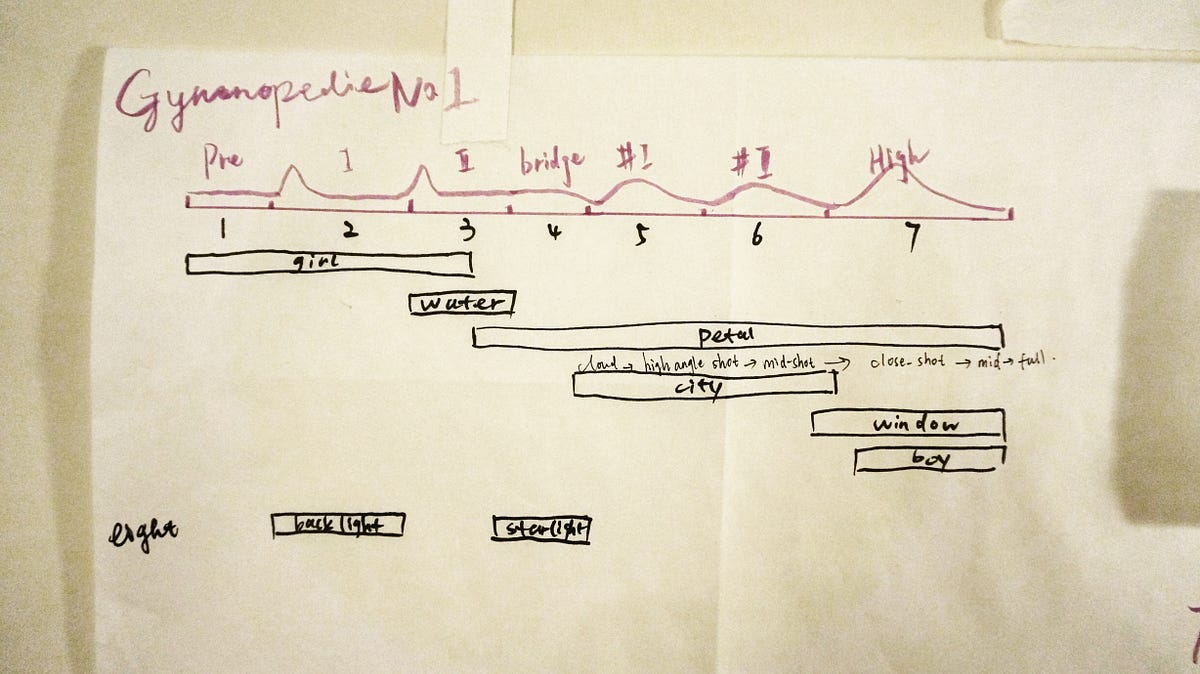 Gynonopedie No 1
Pre I II bridge #I #II High
1 2 3 4 5 6 7
girl
water
petal
cloud → high angle shot → mid-shot → close-shot → mid → full.
city
window
boy
light back light starlight